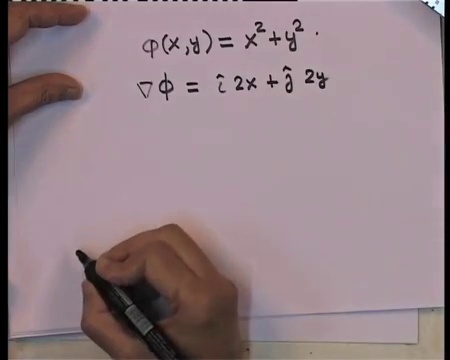 φ(x,y) = x² + y².
∇φ = î 2x + ĵ 2y